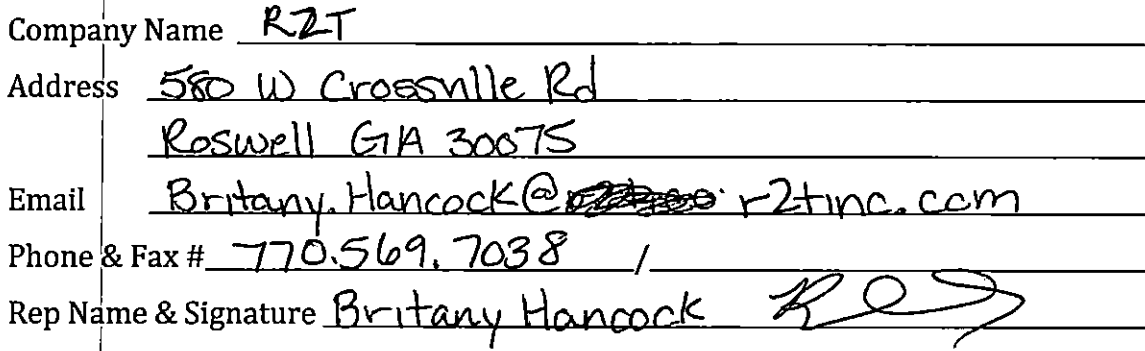 Company Name R2T
Address 580 W Crossville Rd
Roswell GA 30075
Email Britany.Hancock@ r2tinc.com
Phone & Fax # 770.569.7038 /
Rep Name & Signature Britany Hancock